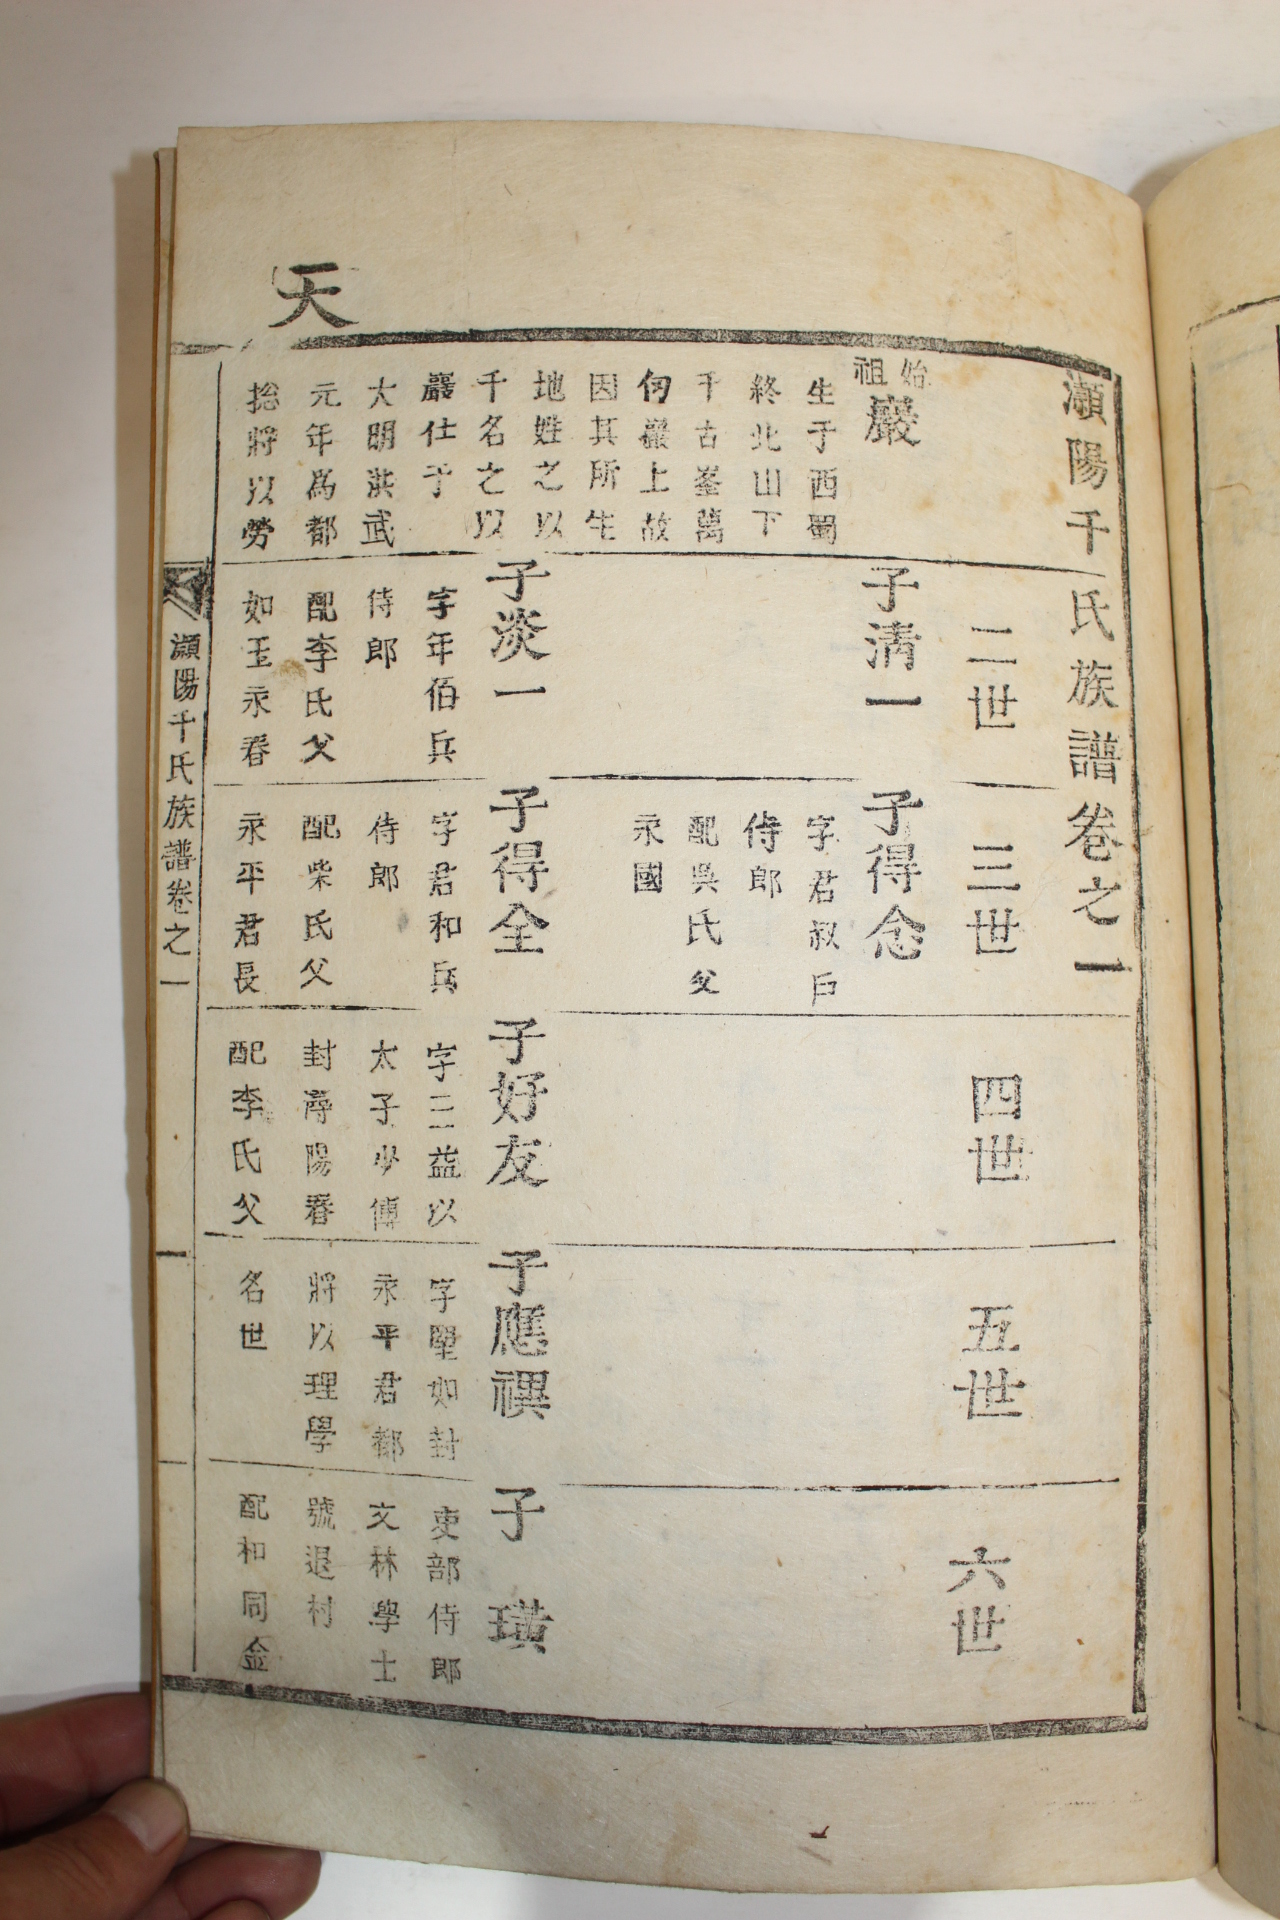 天
灝陽千氏族譜卷之一
始祖
巖
生于西蜀
終北山下
千古峯萬
仞巖上故
因其所生
地姓之以
千名之以
巖仕于
大明洪武
元年爲都
捴將以勞
二世
子淸一
子淡一
字年伯兵
侍郎
配李氏父
如玉永春
三世
子得念
字君叔戶
侍郎
配吳氏父
永國
子得全
字君和兵
侍郎
配柴氏父
永平君長
四世
子好友
字二益以
太子少傅
封潯陽春
配李氏父
五世
子應禩
字聖如封
永平君都
將以理學
名世
六世
子璜
吏部侍郎
文林學士
號退村
配和同金
灝陽千氏族譜卷之一
一